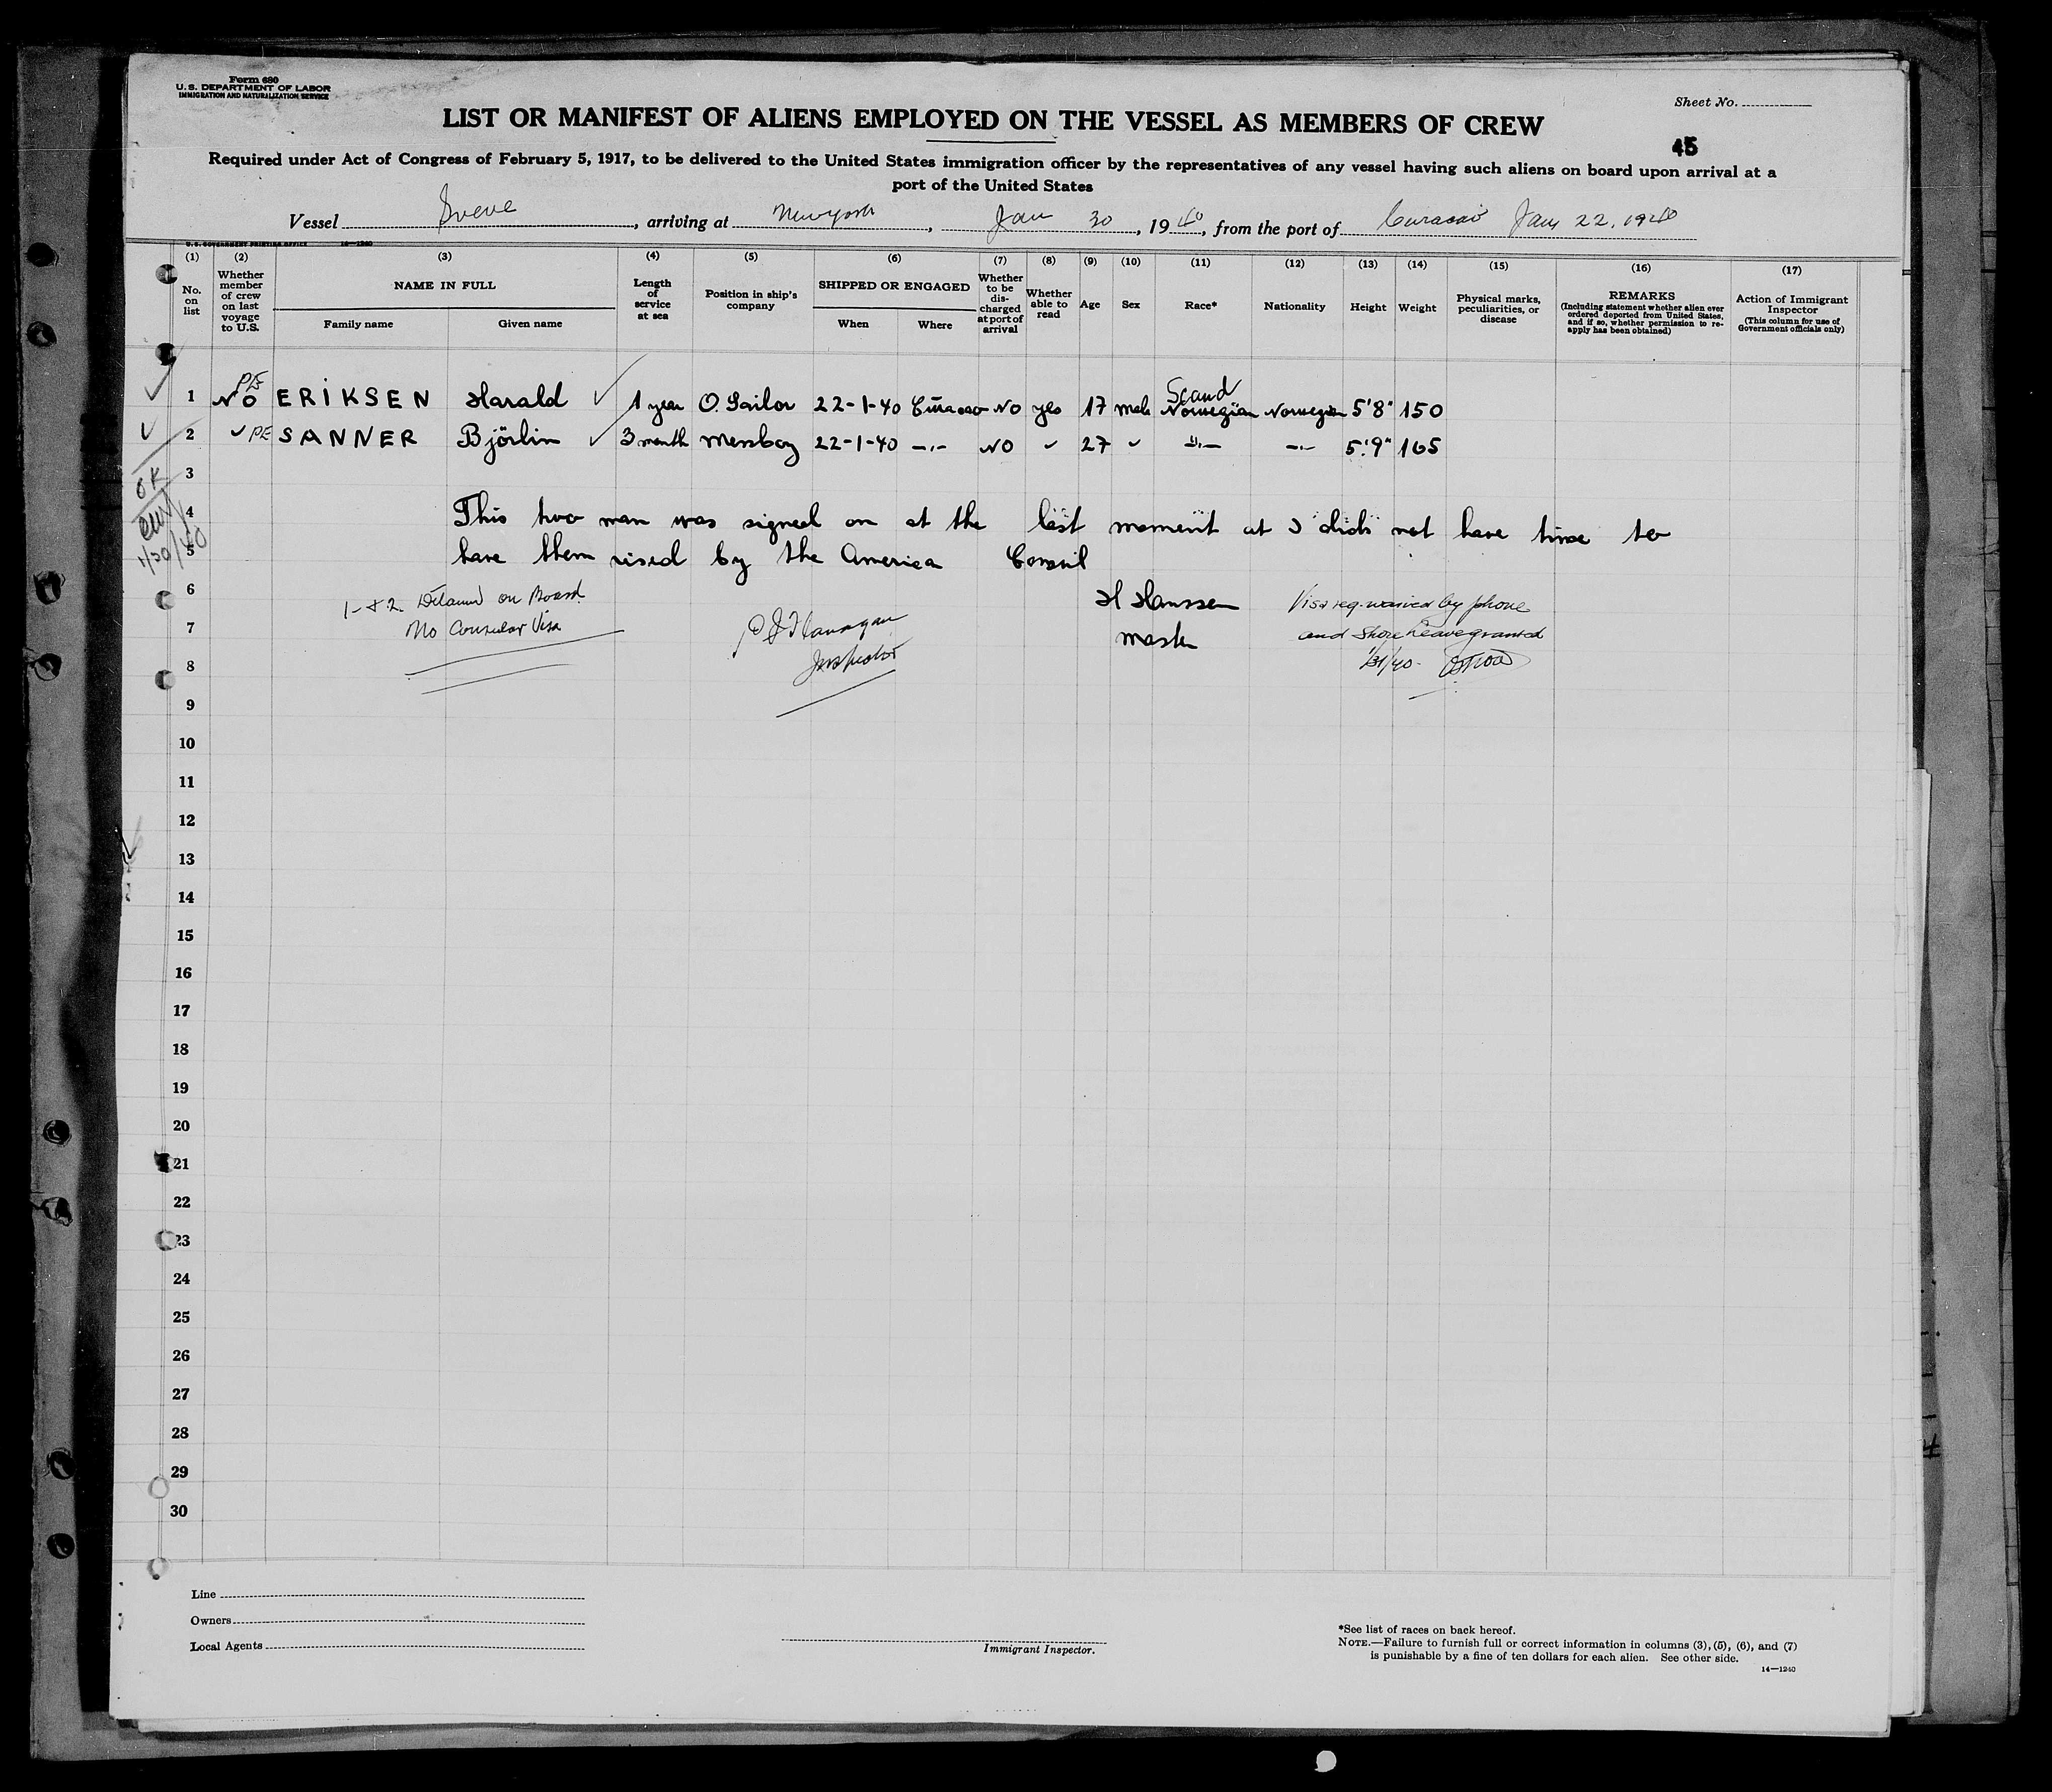 Form 680
U.S. DEPARTMENT OF LABOR
IMMIGRATION AND NATURALIZATION SERVICE
Sheet No.
LIST OR MANIFEST OF ALIENS EMPLOYED ON THE VESSEL AS MEMBERS OF CREW
45
Required under Act of Congress of February 5, 1917, to be delivered to the United States immigration officer by the representatives of any vessel having such aliens on board upon arrival at a
port of the United States
Vessel Sveve, arriving at New York, Jan 30, 1940, from the port of Curacao Jan 22, 1940
U.S. GOVERNMENT PRINTING OFFICE 14—1240
(1) (2) (3) (4) (5) (6) (7) (8) (9) (10) (11) (12) (13) (14) (15) (16) (17)
No. on list
Whether member of crew on last voyage to U.S.
NAME IN FULL
Family name Given name
Length of service at sea
Position in ship's company
SHIPPED OR ENGAGED
When Where
Whether to be discharged at port of arrival
Whether able to read
Age
Sex
Race*
Nationality
Height
Weight
Physical marks, peculiarities, or disease
REMARKS
(Including statement whether alien ever ordered deported from United States, and if so, whether permission to reapply has been obtained)
Action of Immigrant Inspector
(This column for use of Government officials only)
PE Scand
1 No ERIKSEN Harald 1 year O. Sailor 22-1-40 Curacao No yes 17 male Norwegian Norwegian 5'8" 150
2 ✓ PE SANNER Björlin 3 month Messboy 22-1-40 -„- NO ✓ 27 ✓ -„- -„- 5'9" 165
3
OK
1/30/40
4 This two man was signed on at the last moment at I did not have time to
5 have them vised by the America Consil
6 1-&2. Detained on Board H Hanssen Visa req. waived by phone
7 No Consular Visa P J Flanagan Master and Shore Leave granted
8 Inspector 1/31/40.
9
10
11
12
13
14
15
16
17
18
19
20
21
22
23
24
25
26
27
28
29
30
Line
Owners
Local Agents
Immigrant Inspector.
*See list of races on back hereof.
NOTE.—Failure to furnish full or correct information in columns (3), (5), (6), and (7)
is punishable by a fine of ten dollars for each alien. See other side.
14—1240